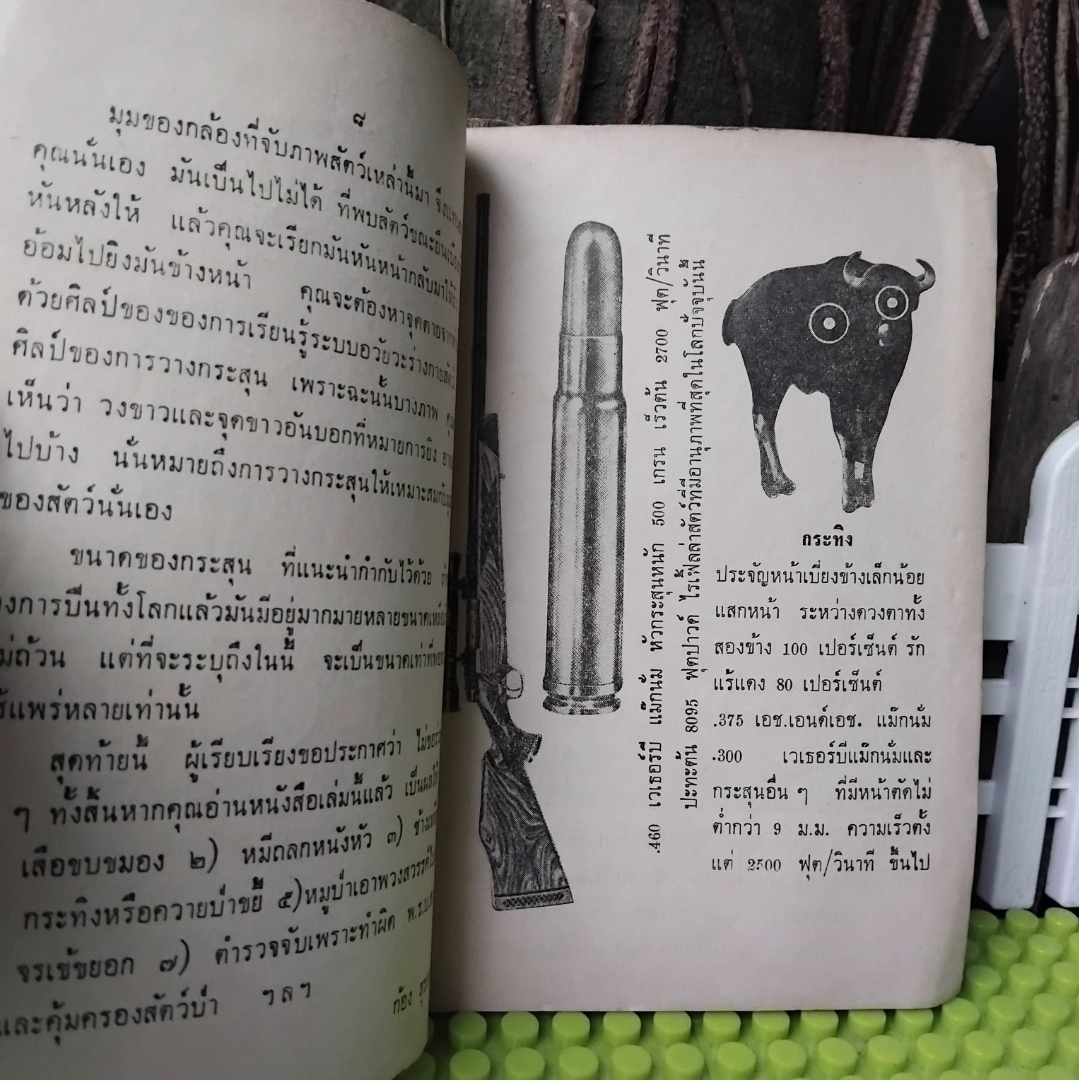 ๘
มุมของกล้องที่จับภาพสัตว์เหล่านี้มา
คุณนั่นเอง มันเป็นไปไม่ได้ ที่พบสัตว์ขณะยืน
หันหลังให้ แล้วคุณจะเรียกมันหันหน้ากลับมา
อ้อมไปยิงมันข้างหน้า คุณจะต้องหาจุดตาย
ด้วยศิลป์ของของการเรียนรู้ระบบอวัยวะร่างกาย
ศิลป์ของการวางกระสุน เพราะฉะนั้นบางภาพ
เห็นว่า วงขาวและจุดขาวอันบอกที่หมายการยิง
ไปบ้าง นั่นหมายถึงการวางกระสุนให้เหมาะสม
ของสัตว์นั่นเอง
ขนาดของกระสุน ที่แนะนำกำกับไว้ด้วย
งการปืนทั้งโลกแล้วมันมีอยู่มากมายหลายขนาด
ม่ถ้วน แต่ที่จะระบุถึงในนี้ จะเป็นขนาดเท่าที่
ร่แพร่หลายเท่านั้น
สุดท้ายนี้ ผู้เรียบเรียงขอประกาศว่า
ๆ ทั้งสิ้นหากคุณอ่านหนังสือเล่มนี้แล้ว
เสือขบขมอง ๒) หมีถลกหนังหัว ๓)
กระทิงหรือควายป่าขยี้ ๕)หมูป่าเอาพวงสวรรค์
จรเข้ขยอก ๗) ตำรวจจับเพราะทำผิด
และคุ้มครองสัตว์ป่า ฯลฯ
.460 เวเธอร์บี แม๊กนั่ม หัวกระสุนหนัก 500 เกรน เร็วต้น 2700 ฟุต/วินาที
ปะทะต้น 8095 ฟุตปาวด์ ไรเฟิ้ลล่าสัตว์ที่มีอานุภาพที่สุดในโลกปัจจุบันนี้
กระทิง
ประจัญหน้าเบี่ยงข้างเล็กน้อย
แสกหน้า ระหว่างดวงตาทั้ง
สองข้าง 100 เปอร์เซ็นต์ รัก
แร้แดง 80 เปอร์เซ็นต์
.375 เอช.เอนด์เอช. แม๊กนั่ม
.300 เวเธอร์บีแม๊กนั่มและ
กระสุนอื่น ๆ ที่มีหน้าตัดไม่
ต่ำกว่า 9 ม.ม. ความเร็วตั้ง
แต่ 2500 ฟุต/วินาที ขึ้นไป